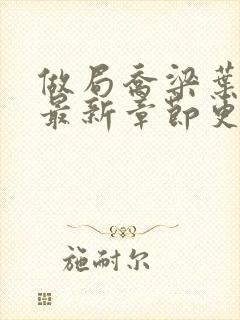 做局乔梁叶
最新章节更
施耐尔